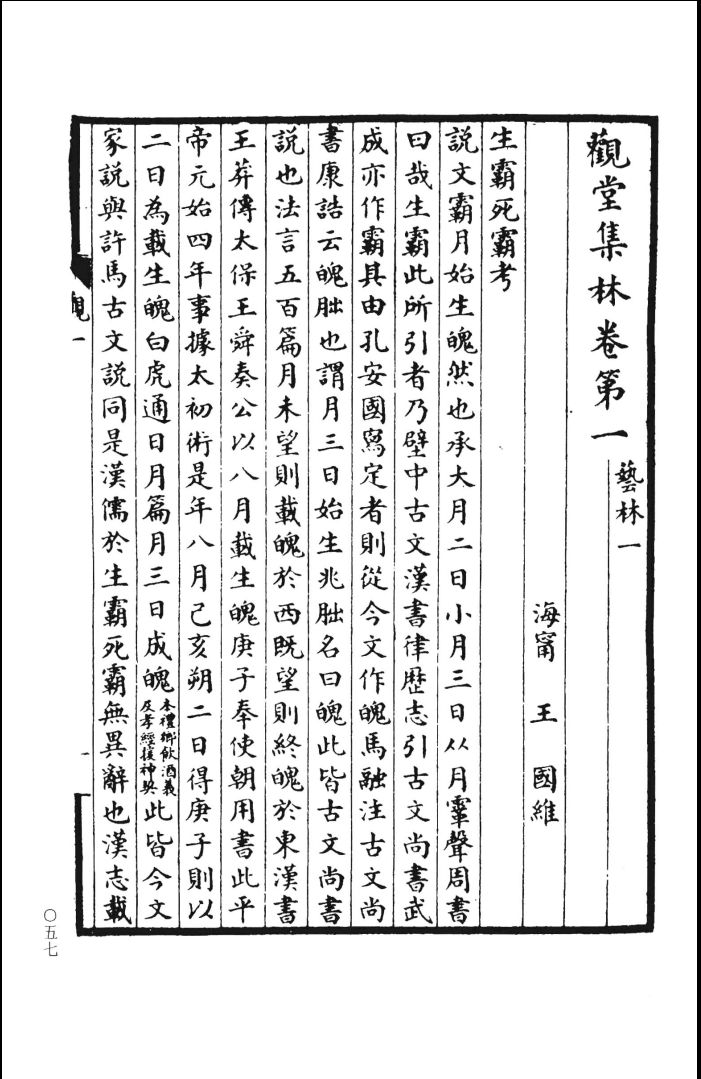 觀堂集林卷第一
藝林一
海甯 王 國維
生霸死霸考
說文霸月始生魄然也承大月二日小月三日从月䨣聲周書
曰哉生霸此所引者乃壁中古文漢書律歷志引古文尚書武
成亦作霸其由孔安國寫定者則從今文作魄馬融注古文尚
書康誥云魄朏也謂月三日始生兆朏名曰魄此皆古文尚書
說也法言五百篇月未望則載魄於西既望則終魄於東漢書
王莽傳太保王舜奏公以八月載生魄庚子奉使朝用書此平
帝元始四年事據太初術是年八月己亥朔二日得庚子則以
二日為載生魄白虎通日月篇月三日成魄本禮鄉飲酒義及孝經援神契此皆今文
家說與許馬古文說同是漢儒於生霸死霸無異辭也漢志載
觀一
一
〇五七